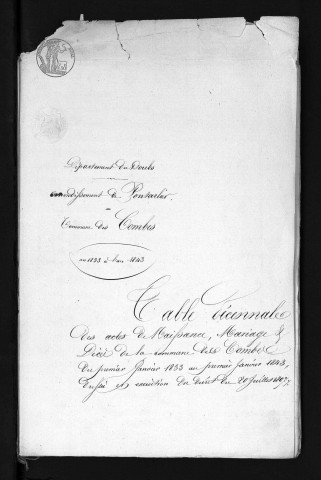 Département du Doubs
arrondissement de Pontarlier.
Commune des Combes
an 1833 à l'an 1843
Table décennale
des actes de Naissance, Mariage &
Décè de la commune des Combes
du premier Janvier 1833 au premier Janvier 1843,
en exécution du décret du 20 Juillet 1807